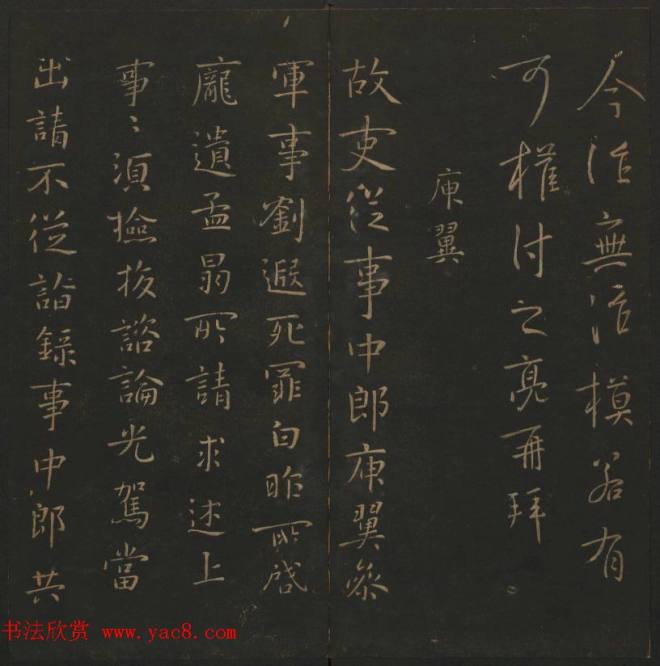 今活無活模若有
可權付之亮再拜
庾翼
故吏從事中郎庾翼參
軍事劉遐死罪白昨所啟
龐遺孟昺所請求述上
事〻須撿按諮論光駕當
出請不從詣録事中郎共
书法欣赏 www.yac8.com